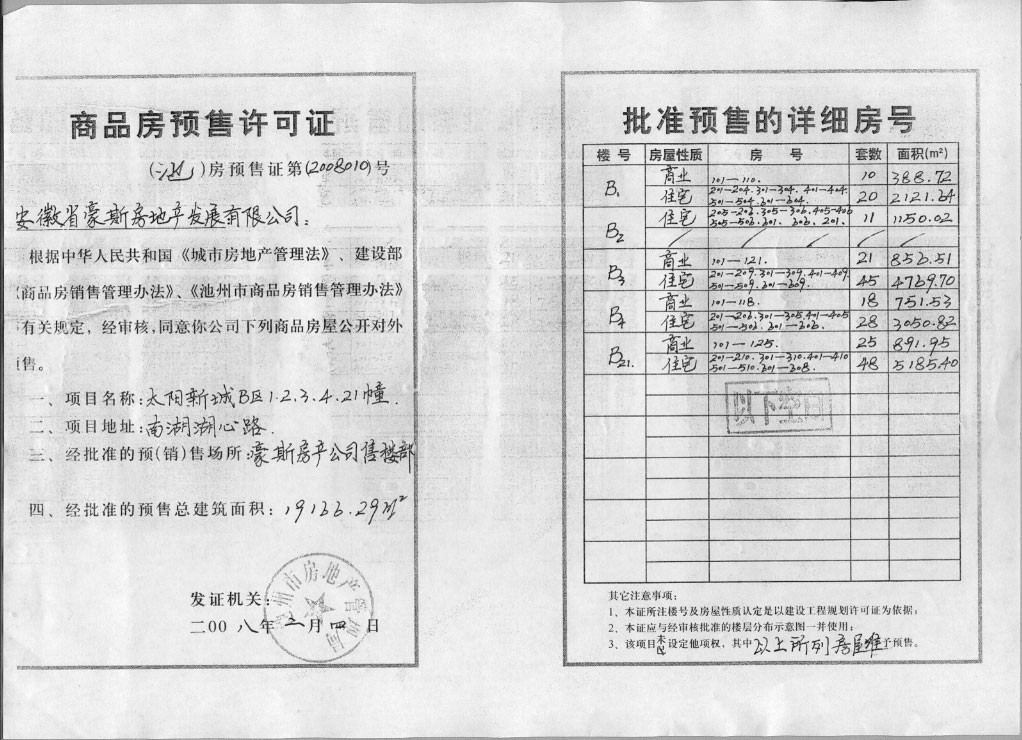 商品房预售许可证
(池)房预售证第(2008010)号
安徽省豪斯房地产发展有限公司:
根据中华人民共和国《城市房地产管理法》、建设部
《商品房销售管理办法》、《池州市商品房销售管理办法》
有关规定,经审核,同意你公司下列商品房屋公开对外
售。
一、项目名称:太阳新城B区1.2.3.4.21幢.
二、项目地址:南湖湖心路.
三、经批准的预(销)售场所:豪斯房产公司售楼部
四、经批准的预售总建筑面积:19166.29M²
发证机关:
二00八年三月四日
池州市房地产管理局
批准预售的详细房号
楼号 房屋性质 房号 套数 面积(m²)
B1 商业 101—110. 10 388.72
住宅 201—204.301—304.401—404. 501—504.601—604. 20 2121.34
B2 住宅 205—206.305—306.405—406 505—506.601.606.201. 11 1150.02
B3 商业 101—121. 21 856.51
住宅 201—209.301—309.401—409. 501—509.601—609. 45 4769.70
B4 商业 101—118. 18 751.53
住宅 201—206.301—305.401—405 501—506.601—606. 28 3050.82
B21. 商业 101—125. 25 891.95
住宅 201—210.301—310.401—410 501—510.601—608. 48 5185.40
以下空白
其它注意事项:
1、本证所注楼号及房屋性质认定是以建设工程规划许可证为依据;
2、本证应与经审核批准的楼层分布示意图一并使用;
3、该项目未设定他项权,其中以上所列房屋准予预售。